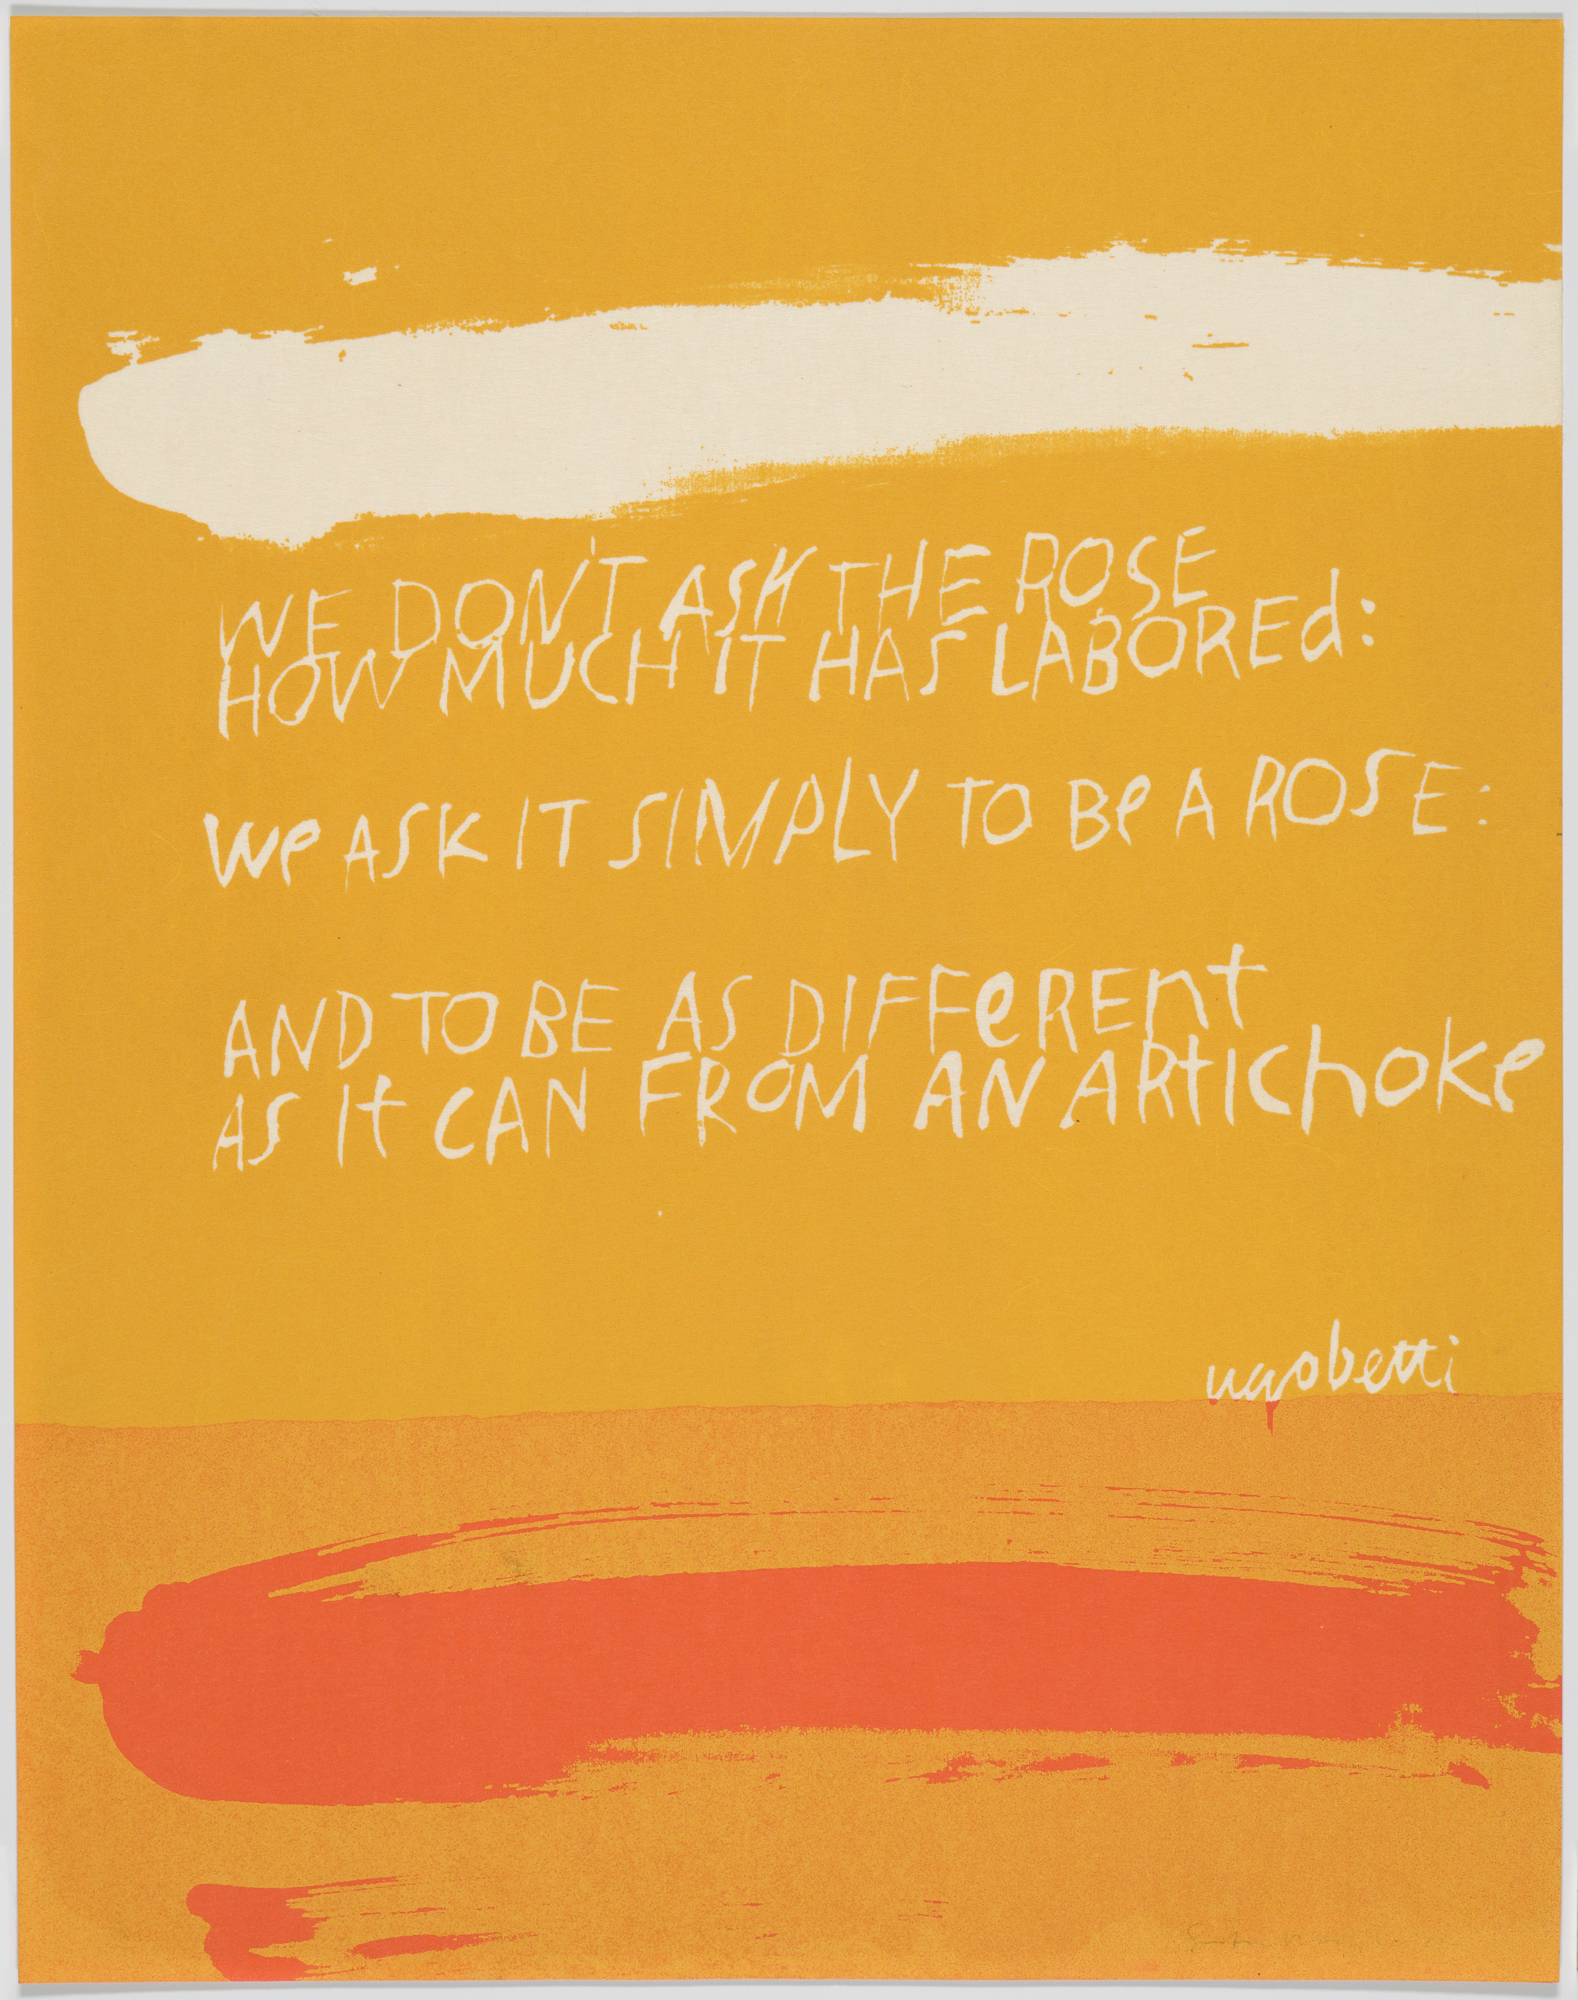 WE DON'T ASK THE ROSE
HOW MUCH IT HAS LABOREd:
We ASK IT SIMPLY TO Be A ROSE:
AND TO BE AS DIFFeREnt
AS It CAN FROM AN ARtIChoke
ugobetti